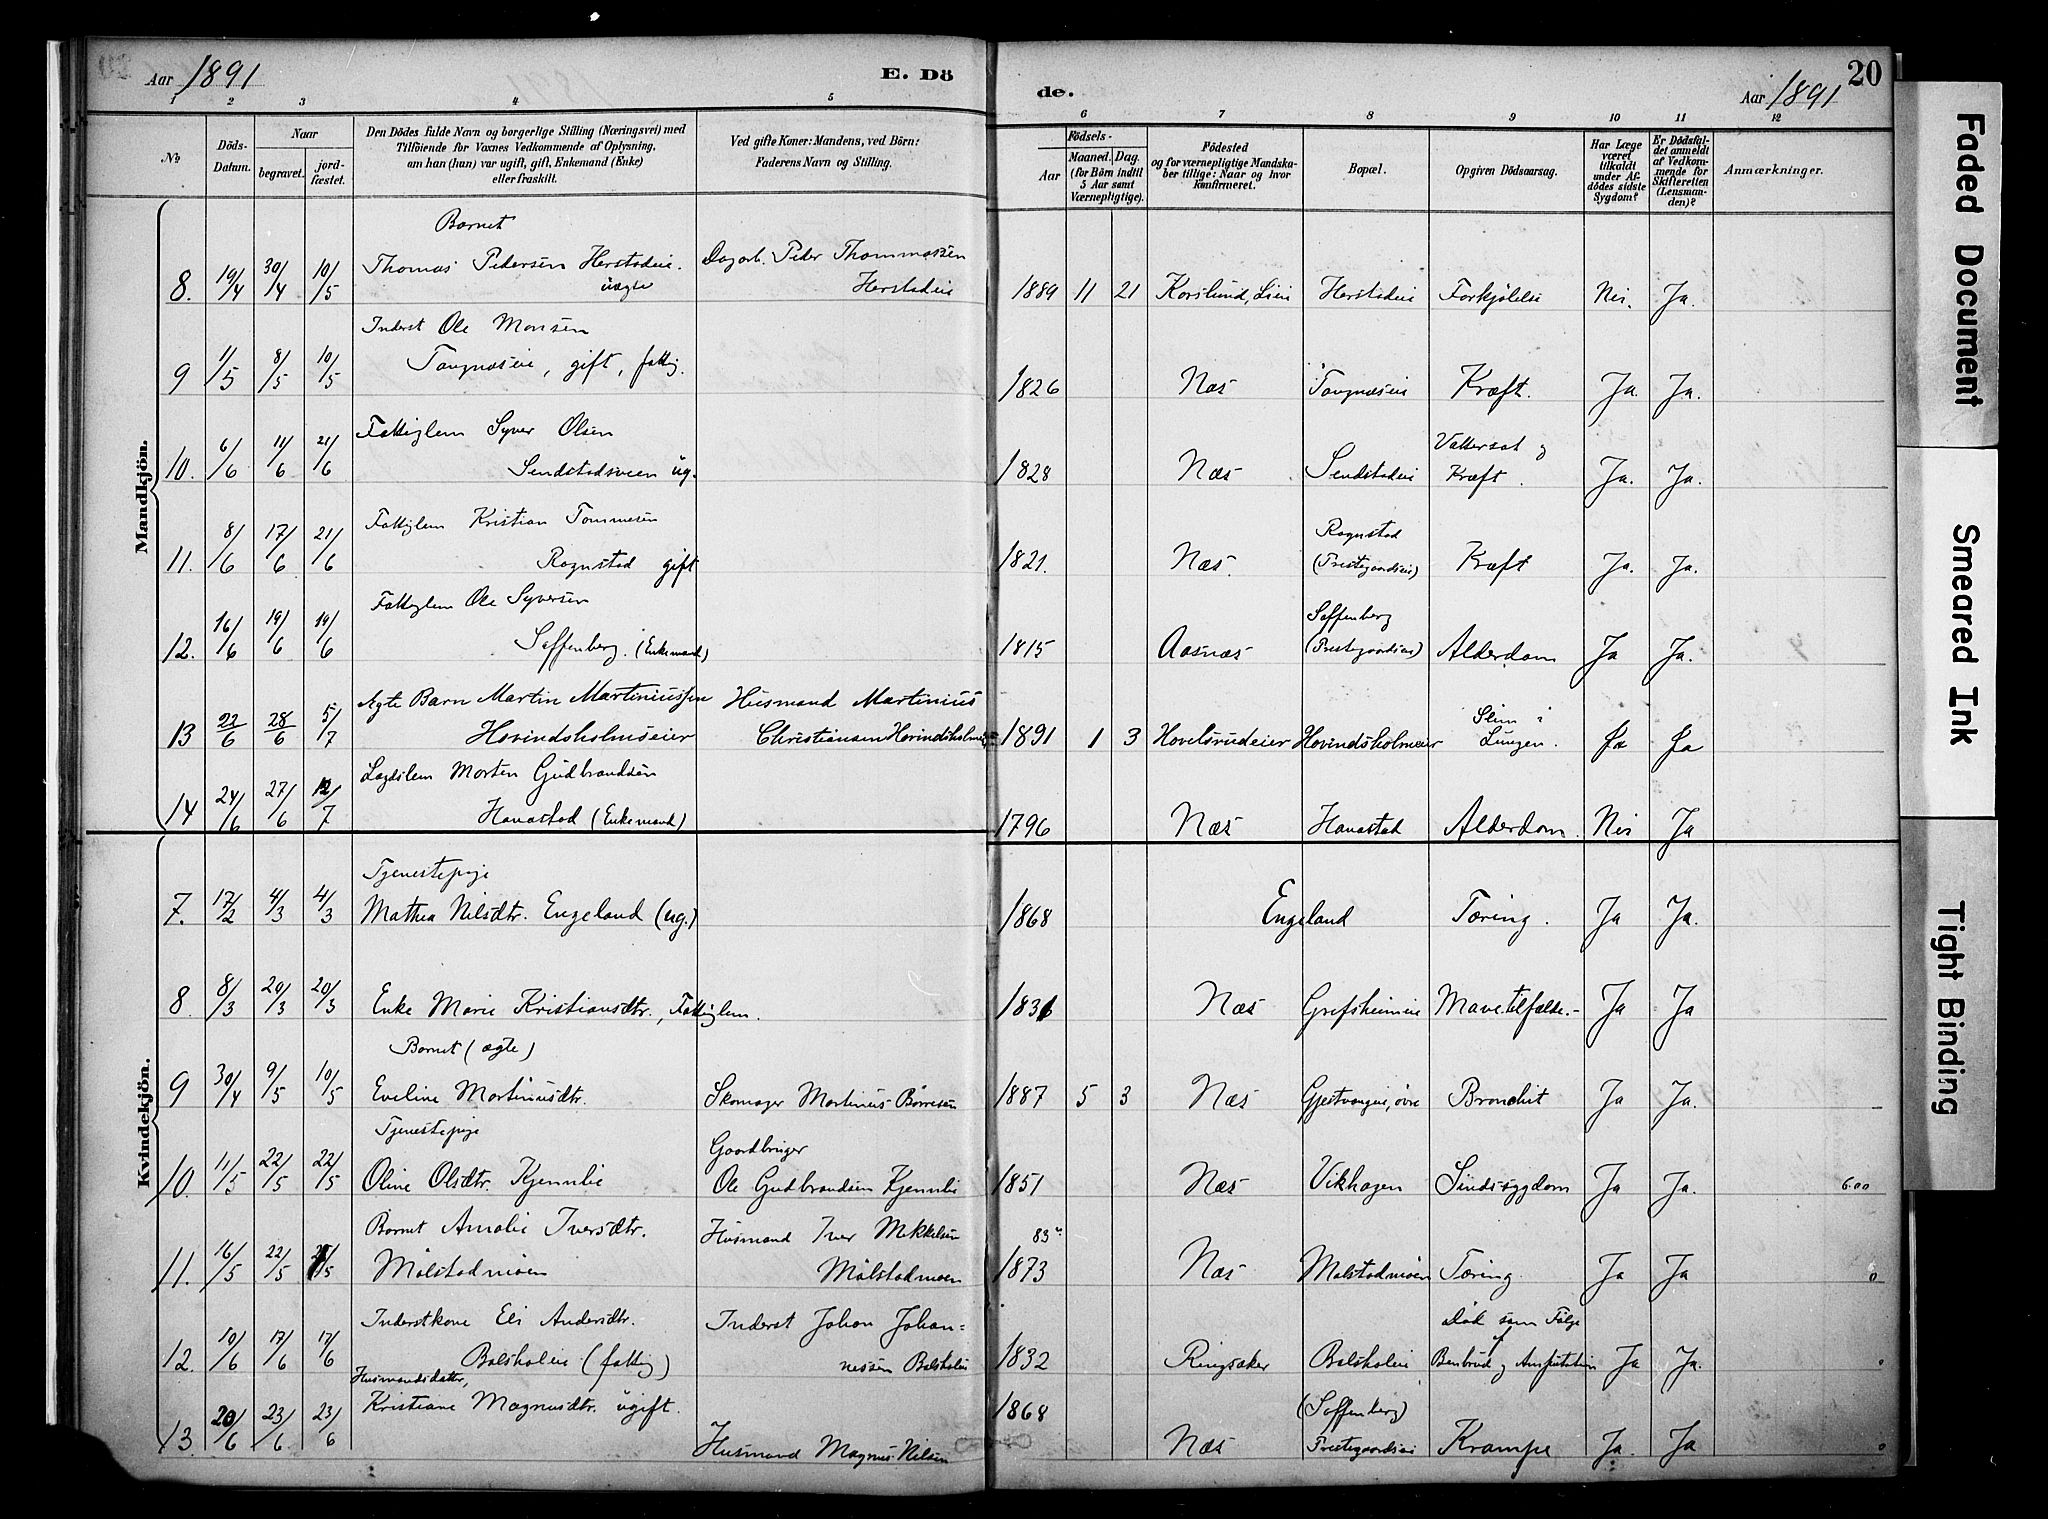 Aar 1891
E. Dö
de.
Aar 1891
20
1 2 3 4 5 6 7 8 9 10 11 12
No
Döds-Datum.
Naar
begravet.
jord-fæstet.
Den Dödes fulde Navn og borgerlige Stilling (Næringsvei) med
Tilföiende for Voxnes Vedkommende af Oplysning,
om han (hun) var ugift, gift, Enkemand (Enke)
eller fraskilt.
Ved gifte Koner: Mandens, ved Börn:
Faderens Navn og Stilling.
Födsels-
Aar
Maaned. Dag.
(for Börn indtil
5 Aar samt
Værnepligtige).
Födested
og for værnepligtige Mandska-
ber tillige: Naar og hvor
konfirmeret.
Bopæl.
Opgiven Dödsaarsag.
Har Læge
været
tilkaldt
under Af-
dödes sidste
Sygdom?
Er Dödsfal-
det anmeldt
af Vedkom-
mende for
Skifteretten
(Lensman-
den)?
Anmærkninger.
Mandkjön.
Barnet
8. 19/4 30/4 10/5 Thomas Pedersen Herstadeie. uægte Dagarb. Peder Thommassen Herstadeie 1889 11 21 Korslund, Herstadeie Forkjölelse Nei. Ja.
Inderst Ole Monsen
9 1/5 8/5 10/5 Tangnæseie, gift, fattig. 1826 Næs Tangnæseie Kræft. Ja. Ja.
Fattiglem Syver Olsen
10. 6/6 11/6 21/6 Sendstadsveen ug. 1828 Næs Sendstadeie Vattersot og Kræft. Ja. Ja.
Fattiglem Kristian Tommesen
11. 8/6 17/6 21/6 Rognstad gift 1821. Næs. Rognstad (Prestegaardseie) Kræft Ja. Ja.
Fattiglem Ole Syversen
12. 16/6 19/6 19/6 Soffenberg. (Enkemand) 1815 Aasnæs Soffenberg (Prestegaardseie) Alderdom Ja Ja.
Ægte Barn Martin Martiniussen Husmand Martinius
13 22/6 28/6 5/7 Hovindsholmseier Christiansen Hovindsholmeie 1891 1 3 Hovelsrudeier Hovindsholmeier Slim i Lungen. Ja Ja
Lægdslem Morten Gudbrandsen
14 24/6 27/6 12/7 Hanastad (Enkemand) 1796 Næs Hanastad Alderdom. Nei Ja
Kvindekjön.
Tjenestepige
7. 17/2 4/3 4/3 Mathea Nilsdtr. Engeland (ug.) 1868 Engeland Tæring. Ja Ja.
8. 8/3 20/3 20/3 Enke Marie Kristiansdtr., Fattiglem. 1831 Næs Grefsheimeie Mavetilfælde.- Ja Ja
Barnet (ægte)
9 30/4 9/5 10/5 Eveline Martinusdtr. Skomager Martinus Börresen 1887 5 3 Næs Gjestvangeie, övre Bronchit Ja Ja.
Tjenestepige Gaardbruger
10. 11/5 22/5 22/5 Oline Olsdtr. Kjennlie Ole Gudbrandsen Kjennlie 1851 Næs Vikhagen Sindssygdom Ja Ja. 6.00
Barnet Amalie Iversdtr. Husmand Iver Mikkelsen
11. 16/5 22/5 Mölstadmoen Mölstadmoen 83 1873 Næs Mølstadmoen Tæring. Ja Ja 0
Inderstkone Eli Andersdtr. Inderst Johan Johan=
12. 10/6 17/6 17/6 Balsholeie (fattig) nessen Balsholeie 1832 Ringsaker Balsholeie Död som Fölge af Benbrud og Amputation Ja Ja. 0
Husmandsdatter,
13. 20/6 23/6 23/6 Kristiane Magnusdtr. ugift. Husmand Magnus Nilsen 1868 Næs (Soffenberg) Prestegaardseie Krampe Ja. Ja 0
Faded Document
Smeared Ink
Tight Binding